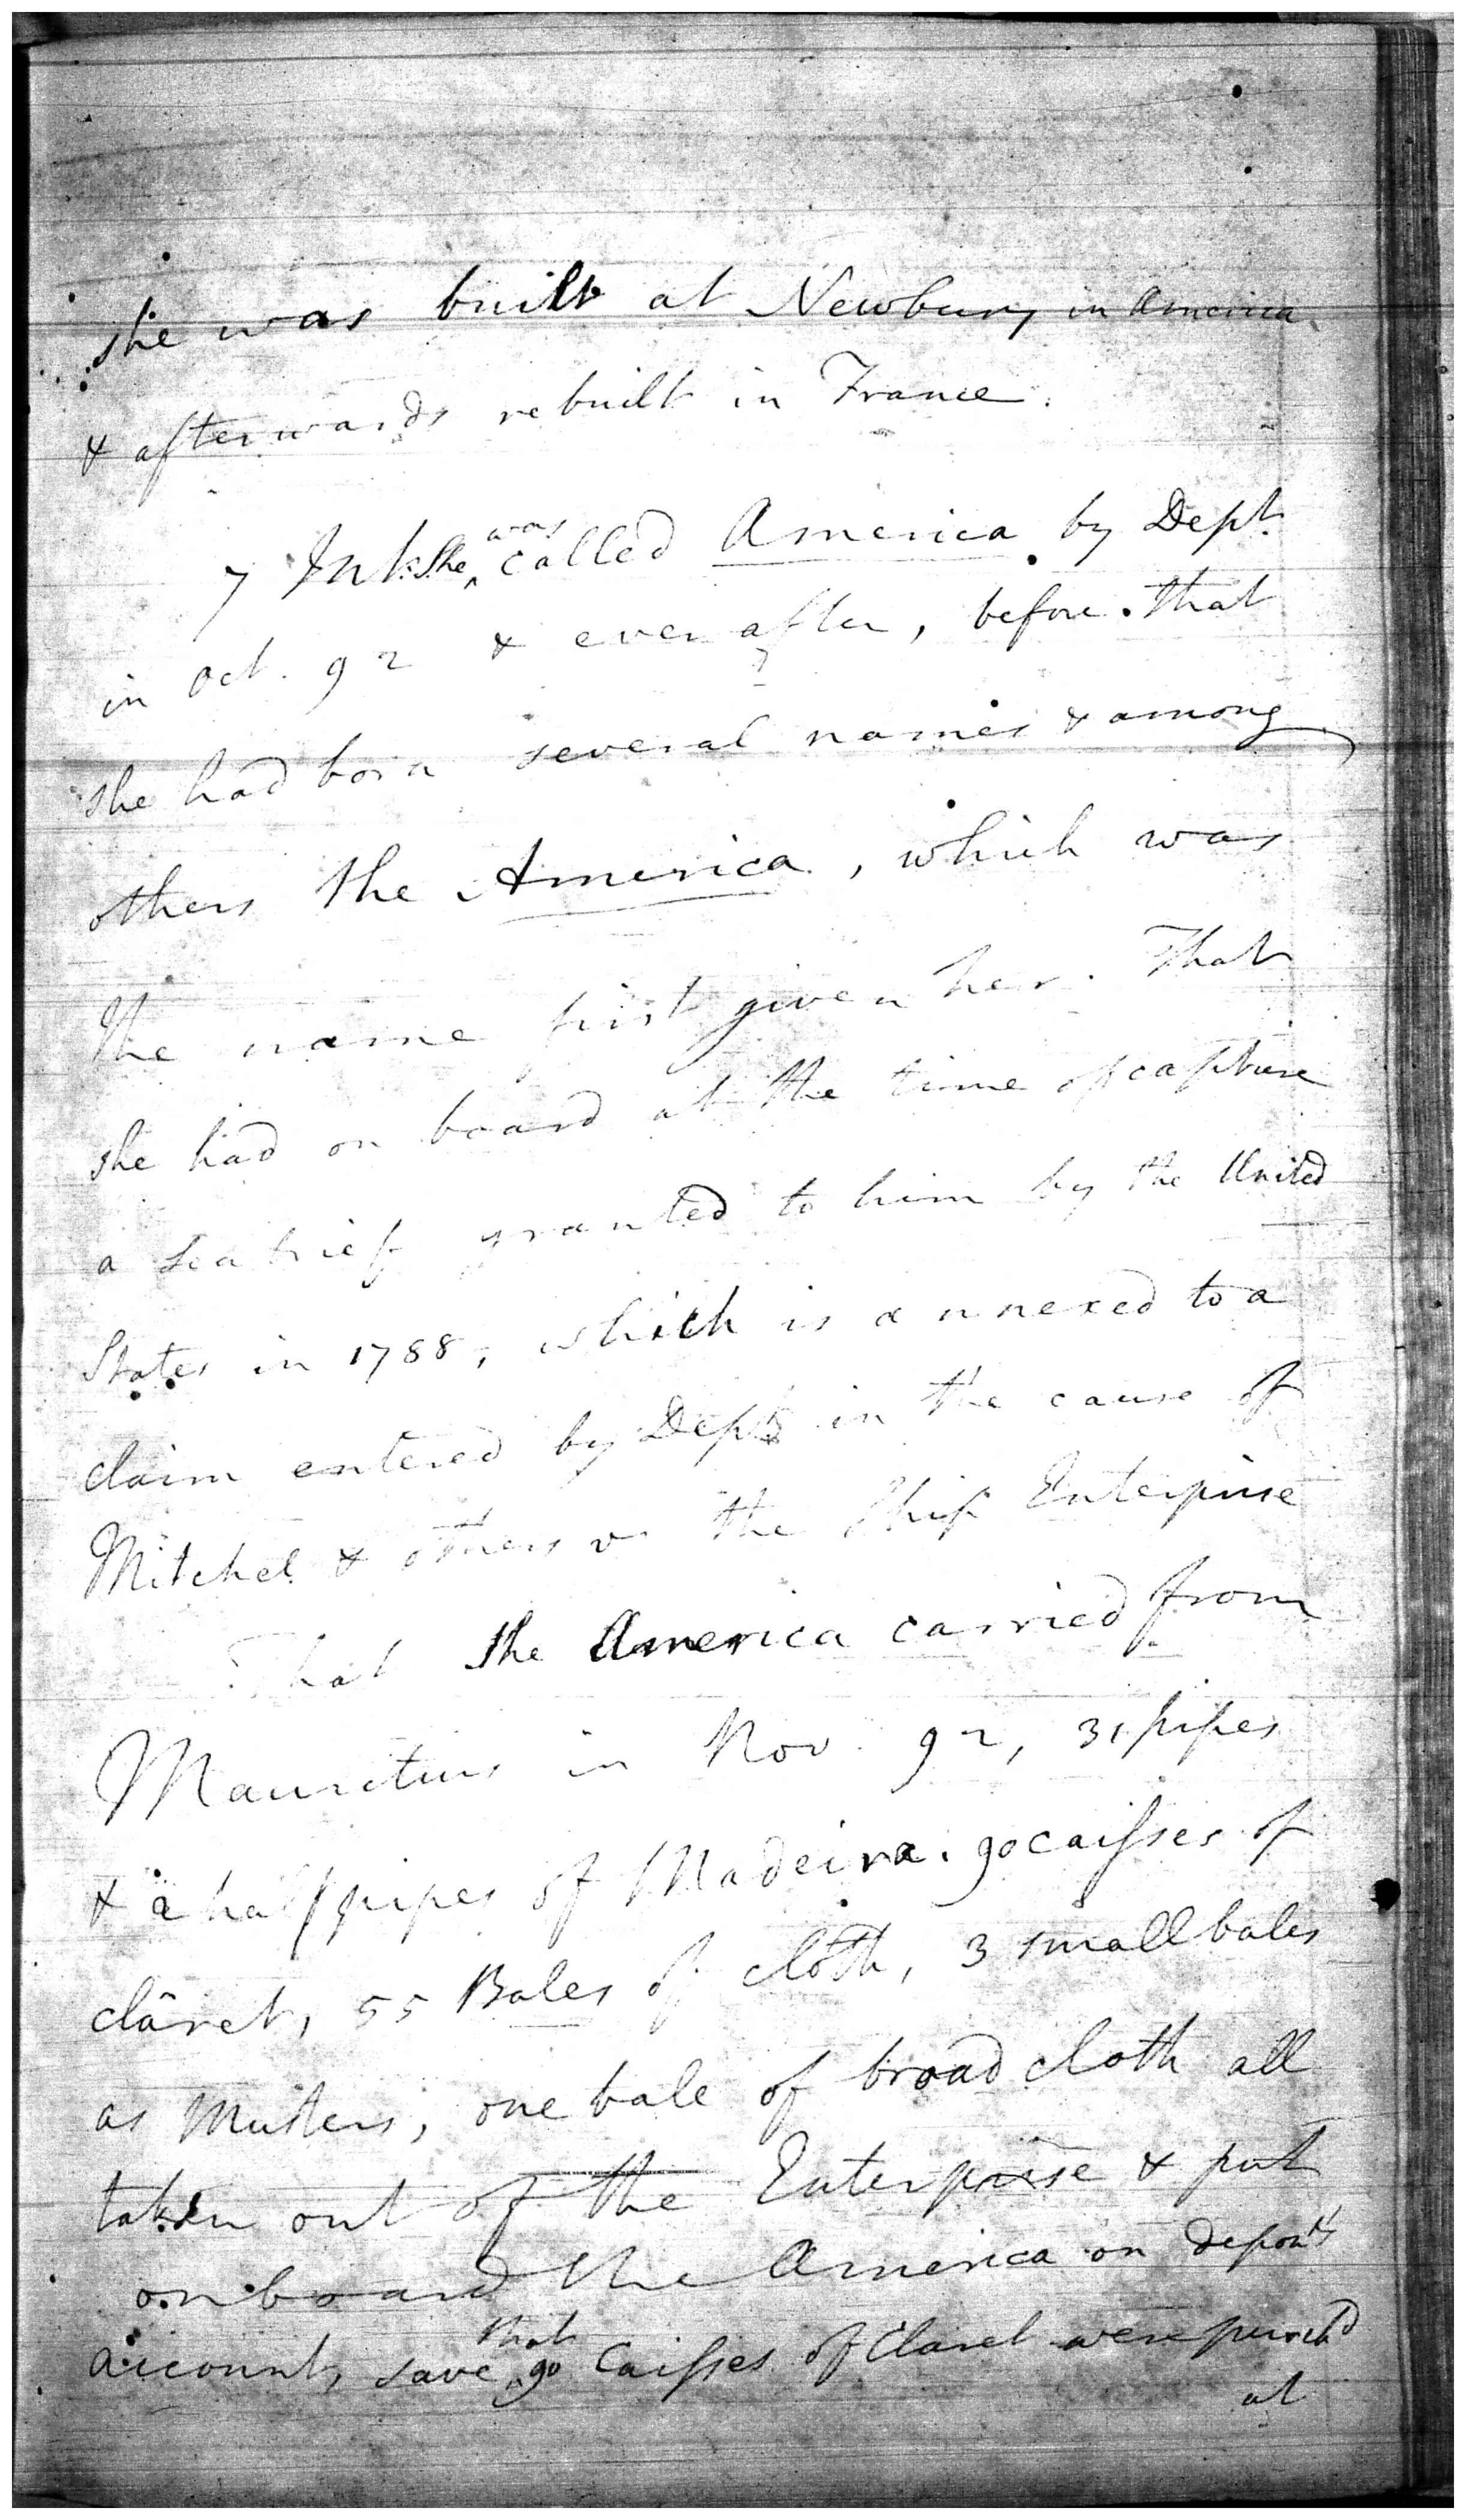 she was built at Newbury in America
& afterwards rebuilt in France.
7 Int. She was called America by Dept
in Oct. 92 & ever after, before that
she had born several names & among
others the America, which was
the name first given her. That
she had on board at the time of capture
a Sea brief granted to him by the United
States in 1788, which is annexed to a
claim entered by Dept in the cause of
Mitchel & others vs the Ship Enterprise
That the America carried from
Mauritius in Nov. 92, 31 pipes
& a half pipes of Madeira. 90 caisses of
claret, 55 Bales of cloth, 3 small bales
as Musters, one bale of broad cloth all
taken out of the Enterprise & put
on board the America on depont's
account, save that 90 Caisses of Claret were purch'd
at